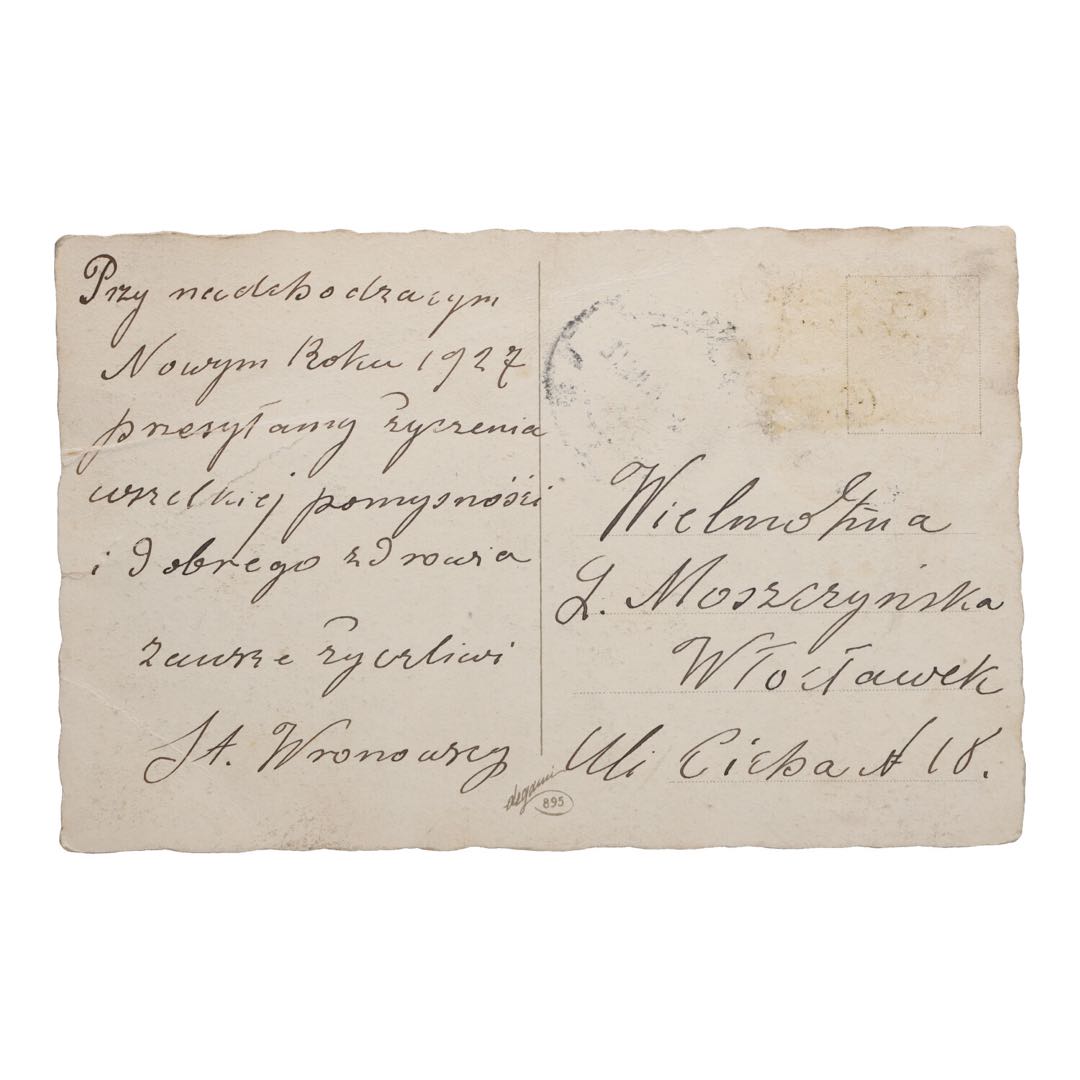 Przy nadchodzącym
Nowym Roku 1927
przesyłamy życzenia
wszelkiej pomysności
i dobrego zdrowia
zawsze życzliwi
St. Wronowscy
Wielmożna
L. Moszczyńska
Włocławek
Uli Cicha № 18.
degami
895